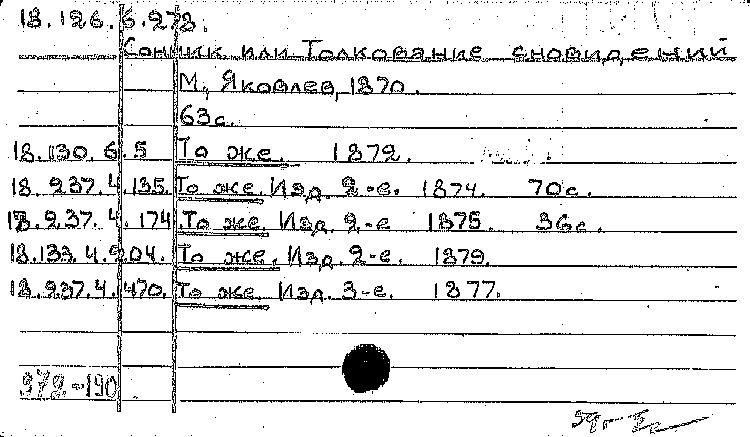 18.126.6.278.
Сонник или Толкование сновидений
М., Яковлев, 1870.
63с.
18.130.6.5 То же. 1872.
18.237.4.135. То же. Изд. 2-е. 1874. 70с.
18.237.4.174. То же. Изд. 2-е 1875. 36с.
18.133.4.204. То же. Изд. 2-е. 1879.
18.237.4.470. То же. Изд. 3-е. 1877.
372-190